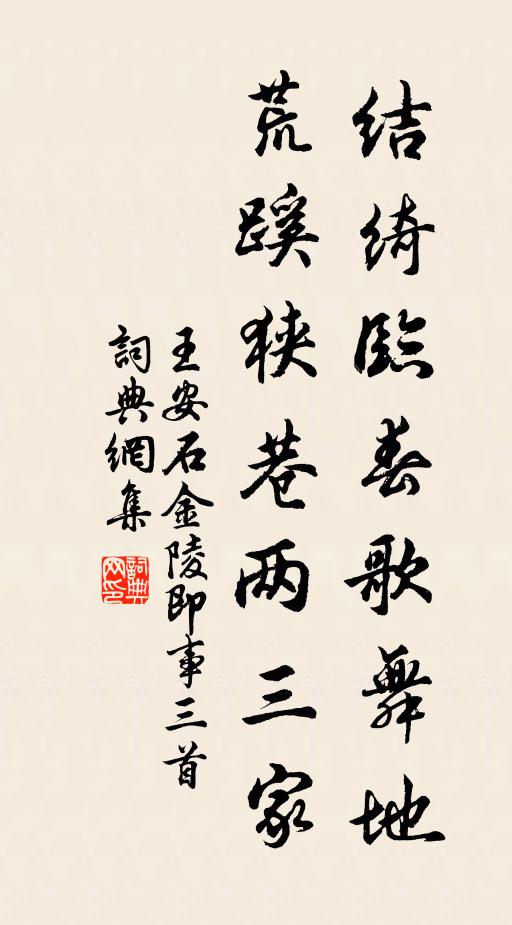 结绮臨春歌舞地
荒蹊狹巷两三家
王安石金陵即事三首
詞典網集
詞典
网印